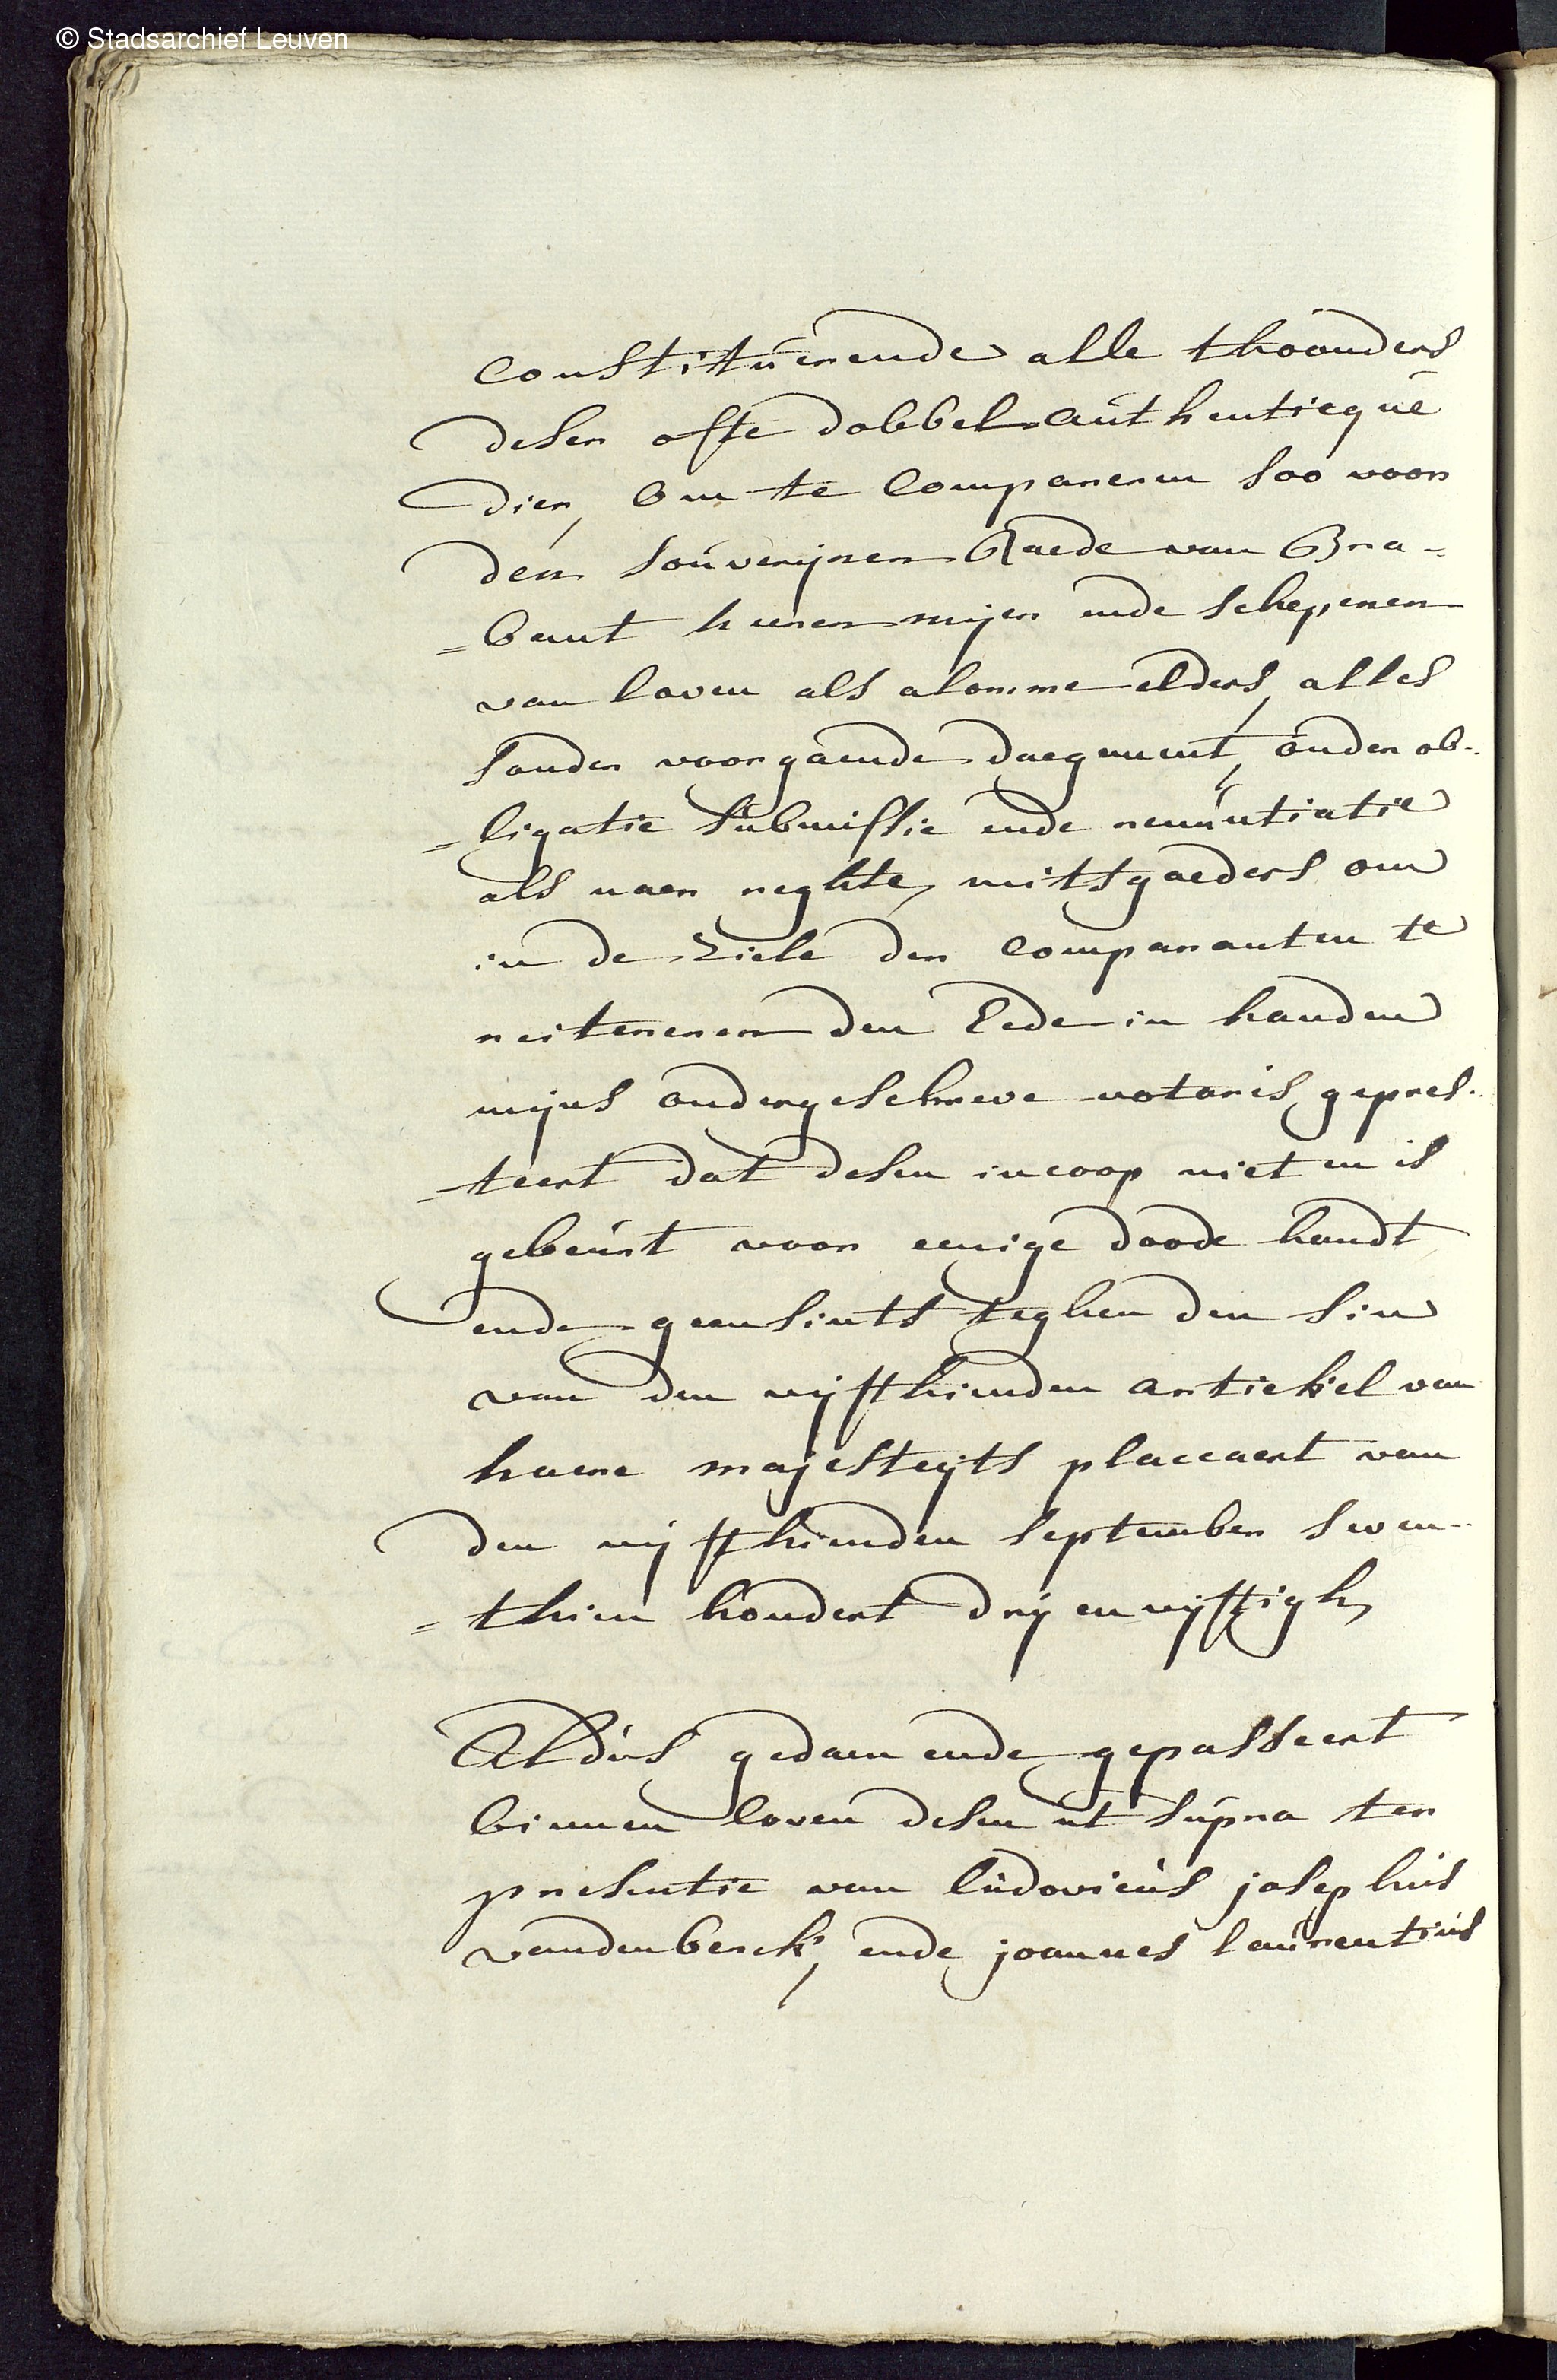 © Stadsarchief Leuven
Constitüerende alle thoonders
deser ofte dobbel authenticque
dier, om te Compareren soo voor
den souverijnen Raede van Bra-
=bant heeren mijer ende schepenen
van loven als alomme elders, alles
sonder voorgaende daegement, onder ob-
-ligatie submissie ende renuntiatie
als naer reghte, mitsgaeders om
in de Ziele der Comparanten te
reitereren den Eede in handen
mijns ondergeschreve notaris gepres-
-teert dat desen incoop niet en is
gebeurt voor eenige doode handt
ende geensints teghen den sin
van den vijfthienden artickel van
haere majesteijts placcaert van
den vijfthienden september seven-
=thien hondert drij en vijftigh,
Aldus gedaen ende gepasseert
binnen loven desen ut supra ter
presentie van ludovicus josephus
vandenberck, ende joannes laurentius